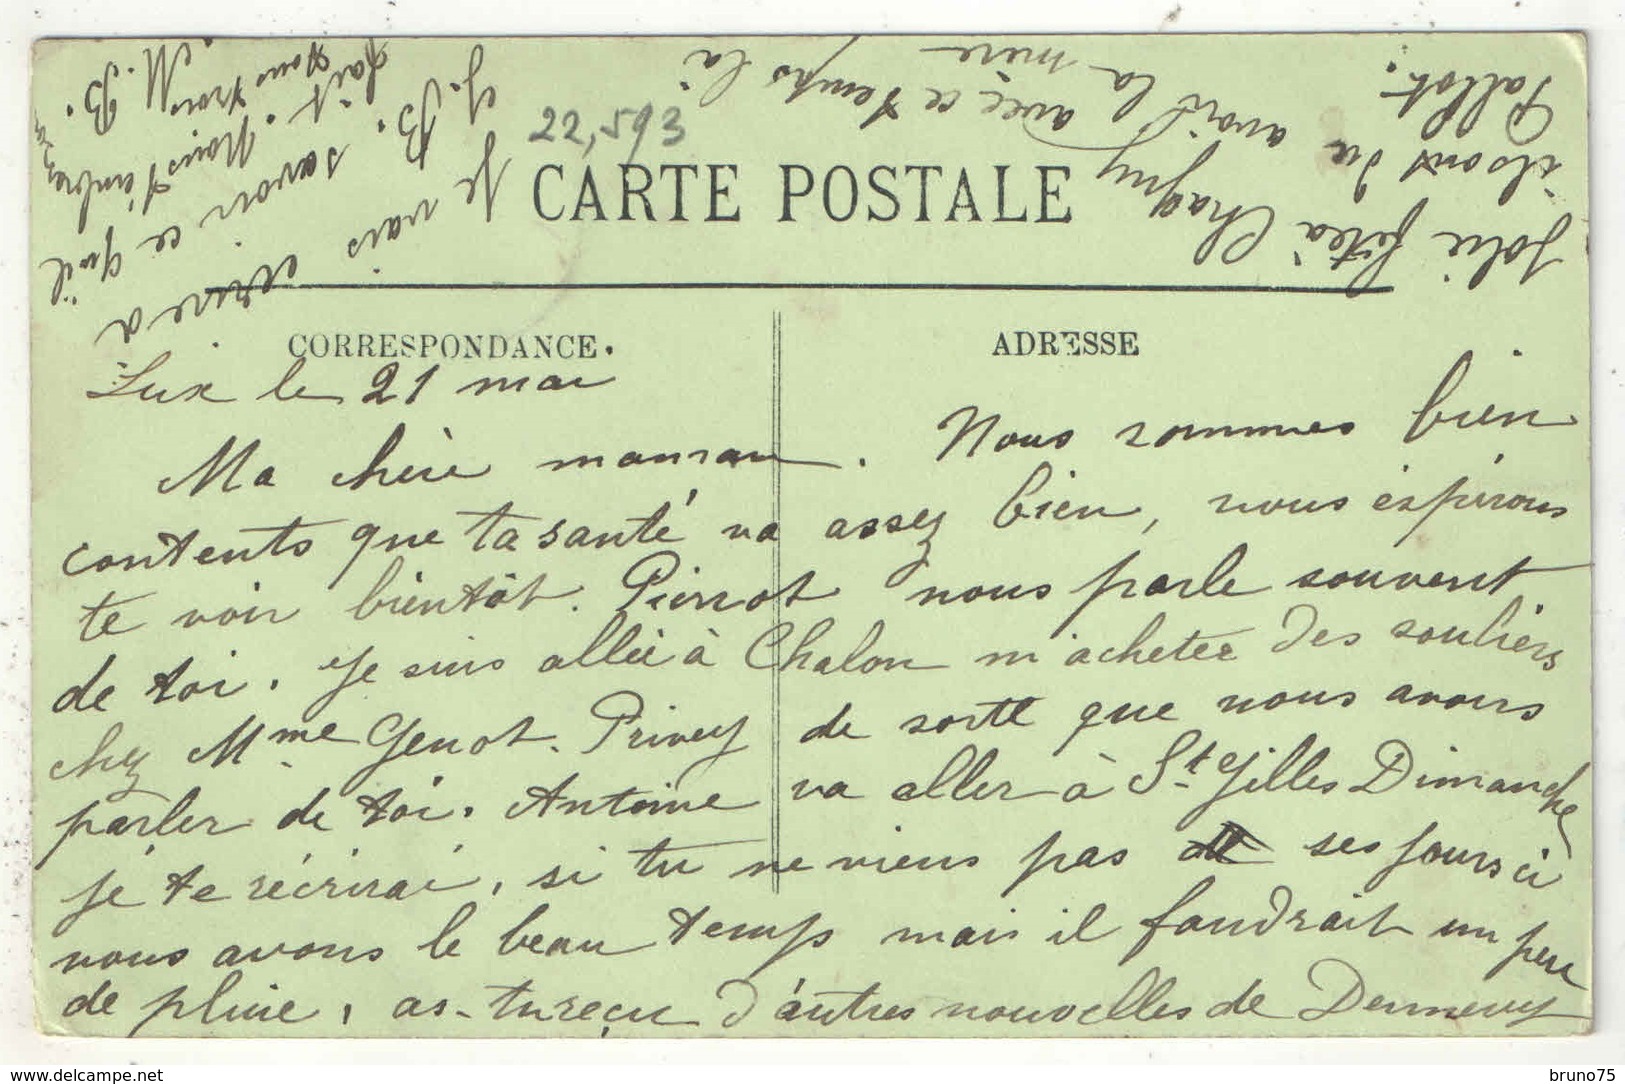 22,593
CARTE POSTALE
CORRESPONDANCE.
ADRESSE
Lux le 21 mai
Ma chère maman. Nous sommes bien
contents que ta santé va assez bien, nous éspérons
te voir bientôt. Pierrot nous parle souvent
de toi. Je suis allée à Chalon m'acheter des souliers
chez Mme Genot. Privey de sorte que nous avons
parler de toi. Antoine va aller à St Gilles Dimanche
je te récrirai, si tu ne viens pas ses jours ci
nous avons le beau temps mais il faudrait un peu
de pluie, as-tu reçu d'autres nouvelles de Dennevy
Jolie fête à Chagny avec ce temps là
ils ont du avoir la mère
Pallot.
Je vais écrire a
J. B. savoir ce qu'il
fait. Nous t'embrasson
tous trois M. B.
bruno75